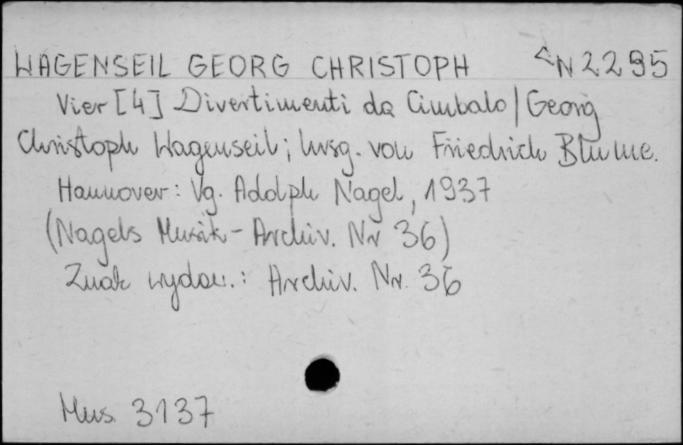 WAGENSEIL GEORG CHRISTOPH <N2295
Vier [4] Divertimenti da Cimbalo / Georg
Christoph Wagenseil; hrsg. von Friedrich Blume.
Hannover: Vg. Adolph Nagel, 1937
(Nagels Musik-Archiv. Nr 36)
Znak wydaw.: Archiv. Nr. 36
Mus. 3137